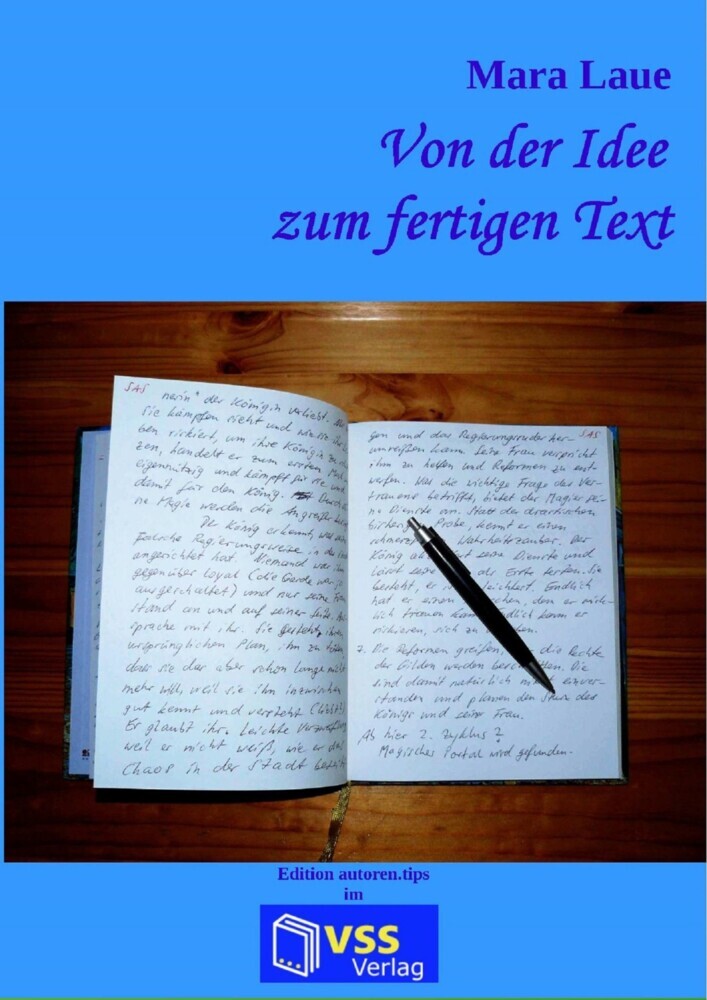 Mara Laue
Von der Idee
zum fertigen Text
SAS
nerin" der Königin verliebt.
Sie kämpfen sieht und wie sie ihr
ben riskiert, um ihre Königin zu
zen, handelt er zum ersten
eigennützig und kämpft für sie und
damit für den König. Durch
ne Magie werden die Angreifer
Der König erkennt, was
falsche Regierungsweise in der
angerichtet hat. Niemand war ihm
gegenüber loyal (die Garde war
ausgeschaltet) und nur seine Frau
stand an und auf seiner Seite.
sprache mit ihr. Sie gesteht, ihren
ursprünglichen Plan, ihn zu
dass sie das aber schon lange nicht
mehr will, weil sie ihn inzwischen
gut kennt und versteht (liebt?)
Er glaubt ihr. Leichte
weil er nicht weiß, wie er das
Chaos in der Stadt
SAS
gen und das Regierungsruder her-
umreißen kann. Seine Frau verspricht
ihm zu helfen und Reformen zu ent-
werfen. Was die wichtige Frage des Ver-
trauens betrifft, bietet der Magier sei-
ne Dienste an. Statt der
Probe, kennt er einen
Wahrheitszauber. Der
König seine Dienste und
lässt seine als Erste
besteht, er ist erleichtert. Endlich
hat er einen Menschen, dem er wirk-
lich trauen kann. Endlich kann er
riskieren, sich zu
7. Die Reformen greifen, die Rechte
der Gilden werden beschnitten. Die
sind damit natürlich nicht einver-
standen und planen den Sturz des
Königs und seiner Frau.
Ab hier 2. Zyklus?
Magisches Portal wird gefunden.
Edition autoren.tips
im
VSS
Verlag